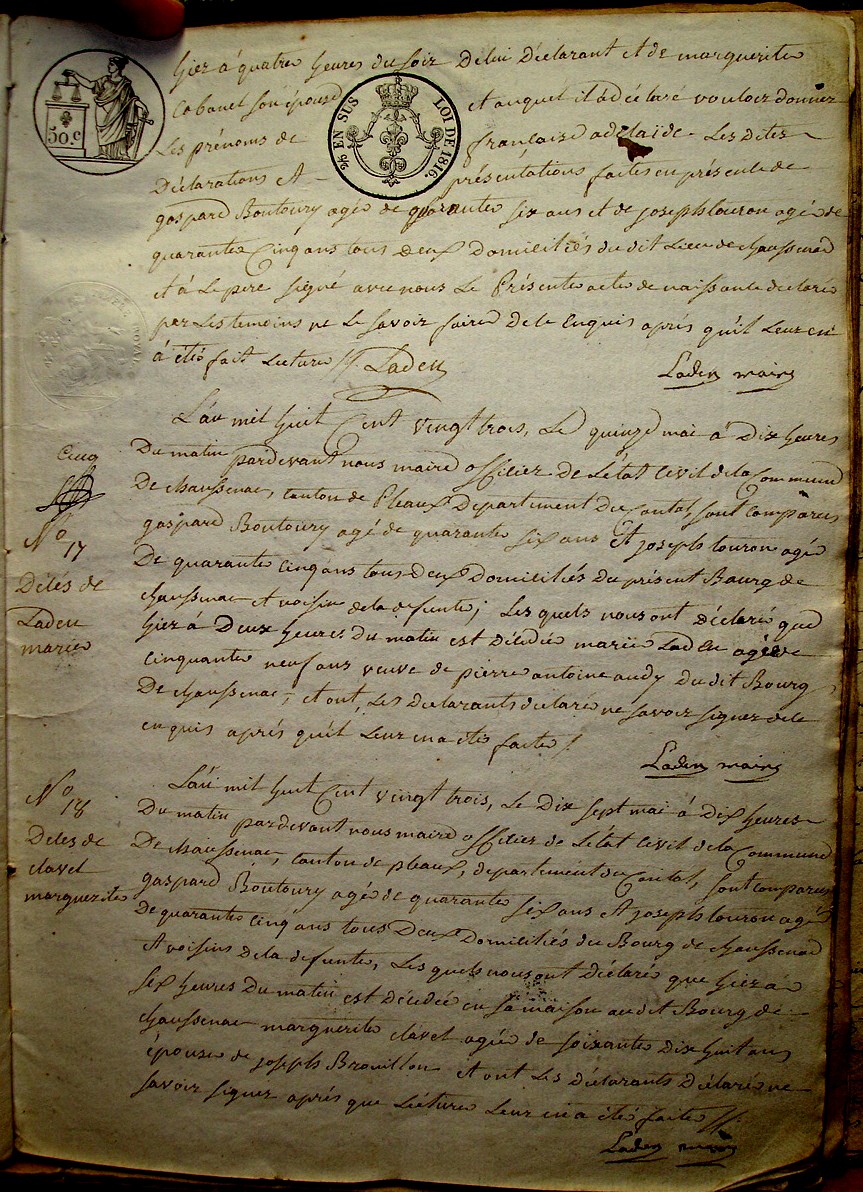 hier à quatre heures du soir De lui Déclarant et de marguerite
Cabanet son épouse et auquel il à déclaré vouloir donner
Les prénoms de françoise adelaïde. Les Dites
Déclarations et présentations faites en présence de
gaspard Boutoury agé de quarante six ans et de joseph touron agé de
quarante Cinq ans tous deux Domiciliés du dit Lieu de chaussenac
et à Le pere signé avec nous Le Présente acte de naissance déclaré
par Les temoins ne Le savoir faire De ce Enquis après qu'il Leur en
à été fait Lecture //. Laden
Laden maire
50.c
2/5 EN SUS
LOI DE 1816.
L'an mil huit Cent vingt trois, Le quinze mai à Dix heures
Du matin pardevant nous maire officier De L'état Civil de la Commune
De chaussenac, canton de Pleaux Departement Du Cantal sont Comparus
gaspard Boutoury agé de quarante six ans Et joseph touron agé
De quarante cinq ans tous deux Domiciliés Du présent Bourg de
chaussenac et voisin de la defunte; Les quels nous ont déclaré que
hier à Deux heures Du matin est décédée marie Laden agée de
cinquante neuf ans veuve de pierre antoine audy du dit Bourg
De chaussenac, et ont, Les declarants déclaré ne savoir signer de ce
enquis après qu'il Leur en a été faite /
Laden maire
Cinq
No
17
Décés de
Laden
marie
L'an mil huit Cent vingt trois, Le Dix sept mai à Dix heures
Du matin pardevant nous maire officier de L'état Civil de la Commune
De chaussenac, canton de pleaux, departement du Cantal, sont comparus
gaspard Boutoury agé de quarante six ans Et joseph touron agé
De quarante cinq ans tous Deux Domiciliés du Bourg de chaussenac
Et voisins De la defunte, Les quels nous ont déclaré que hier à
six heures Du matin est décédée en sa maison au dit Bourg de
chaussenac marguerite clavel agée de soixante Dix huit ans
épouse de joseph Brouillon et ont Les déclarants Déclaré ne
savoir signer après que Lecture Leur en a été faite //.
Laden maire
No
18
Deces de
clavel
marguerite